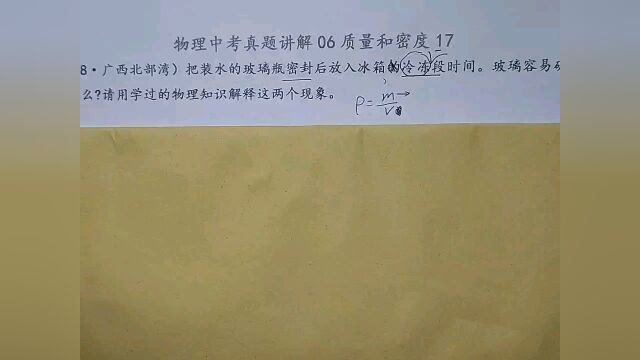 物理中考真题讲解 06 质量和密度 17
8·广西北部湾）把装水的玻璃瓶密封后放入冰箱的冷冻段时间。玻璃容易
么?请用学过的物理知识解释这两个现象。
ρ = m/V